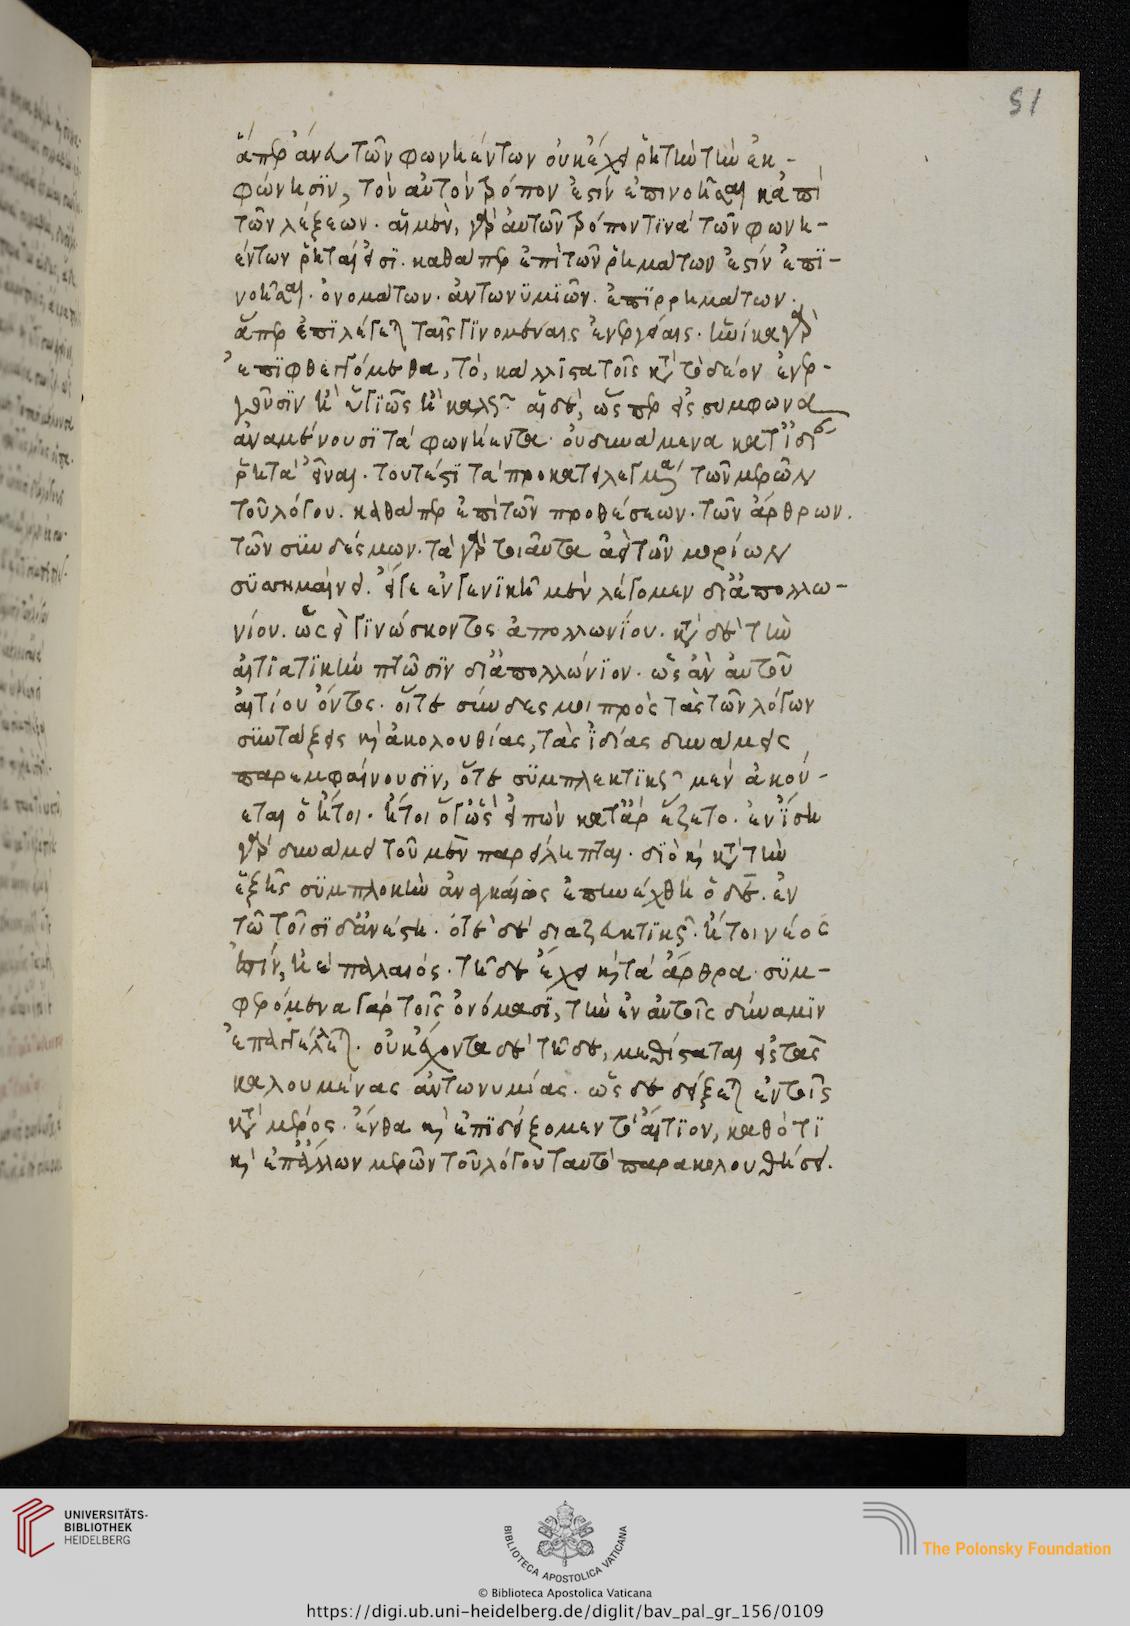 51
ἅπερ ἄνευ τῶν φωνηέντων οὐκ ἔχει ῥητὴν τὴν ἐκ-
φώνησιν, τὸν αὐτὸν τρόπον ἔστιν ἐπινοῆσαι κἀπὶ
τῶν λέξεων. αἱ μὲν, γὰρ αὐτῶν τρόπον τινὰ τῶν φωνη-
έντων ῥηταί εἰσι. καθάπερ ἐπὶ τῶν ῥημάτων ἔστιν ἐπι-
νοῆσαι. ὀνομάτων. ἀντωνυμιῶν. ἐπιρρημάτων.
ἅπερ ἐπιλέγεται ταῖς γινομέναις ἐνεργείαις. ἡνίκα γὰρ
ἐπιφθεγγόμεθα, τὸ, κάλλιστα τοῖς κατὰ τὸ δέον ἐνερ-
γοῦσιν ἢ ὑγιῶς ἢ καλῶς. αἱ δὲ, ὥσπερ εἰς σύμφωνα
ἀναμένουσι τὰ φωνήεντα. οὐ δυνάμενα κατ' ἰδίαν
ῥητὰ εἶναι. τουτέστι τὰ προκατειλεγμένα τῶν μερῶν
τοῦ λόγου. καθάπερ ἐπὶ τῶν προθέσεων. τῶν ἄρθρων.
τῶν συνδέσμων. τὰ γὰρ τοιαῦτα ἀεὶ τῶν μορίων
συσσημαίνει. εἴγε ἐν γενικῇ μὲν λέγομεν δι' ἀπολλω-
νίου. ὡς εἰ γινώσκοντος ἀπολλωνίου. κατὰ δὲ τὴν
αἰτιατικὴν πτῶσιν δι' ἀπολλώνιον. ὡς ἂν αὐτοῦ
αἰτίου ὄντος. οἵτε σύνδεσμοι πρὸς τὰς τῶν λόγων
συντάξεις καὶ ἀκολουθίας, τὰς ἰδίας δυνάμεις
παρεμφαίνουσιν, ὅτε συμπλεκτικῶς μὲν ἀκού-
εται ὁ ἤτοι. ἤτοι ὅγ' ὣς εἰπὼν κατ' ἄρ ἕζετο. ἐν ἴση
γὰρ δυνάμει τοῦ μὲν παρείληπται. διὸ καὶ κατὰ τὴν
ἑξῆς συμπλοκὴν ἀναγκαίως ἐπηνέχθη ὁ δέ. ἐν
τῷ τοῖσι δ' ἀνέστη. ὁτὲ δὲ διαζευκτικῶς. ἤτοι νέος
ἐστίν, ἢ ἐ παλαιός. τῇδε ἔχει καὶ τὰ ἄρθρα. συμ-
φερόμενα γὰρ τοῖς ὀνόμασι, τὴν ἐν αὐτοῖς δύναμιν
ἐπαγγέλλεται. οὐκ ἔχοντα δὲ τῇδε, μεθίσταται εἰς τὰς
καλουμένας ἀντωνυμίας. ὡς δὲ δείξεται ἐν τοῖς
κατὰ μέρος. ἔνθα καὶ ἐπιδείξομεν τὸ αἴτιον, καθότι
καὶ ἐπ' ἄλλων μερῶν τοῦ λόγου ταυτὸ παρακολουθήσει.
UNIVERSITÄTS-
BIBLIOTHEK
HEIDELBERG
BIBLIOTECA APOSTOLICA VATICANA
The Polonsky Foundation
© Biblioteca Apostolica Vaticana
https://digi.ub.uni-heidelberg.de/diglit/bav_pal_gr_156/0109